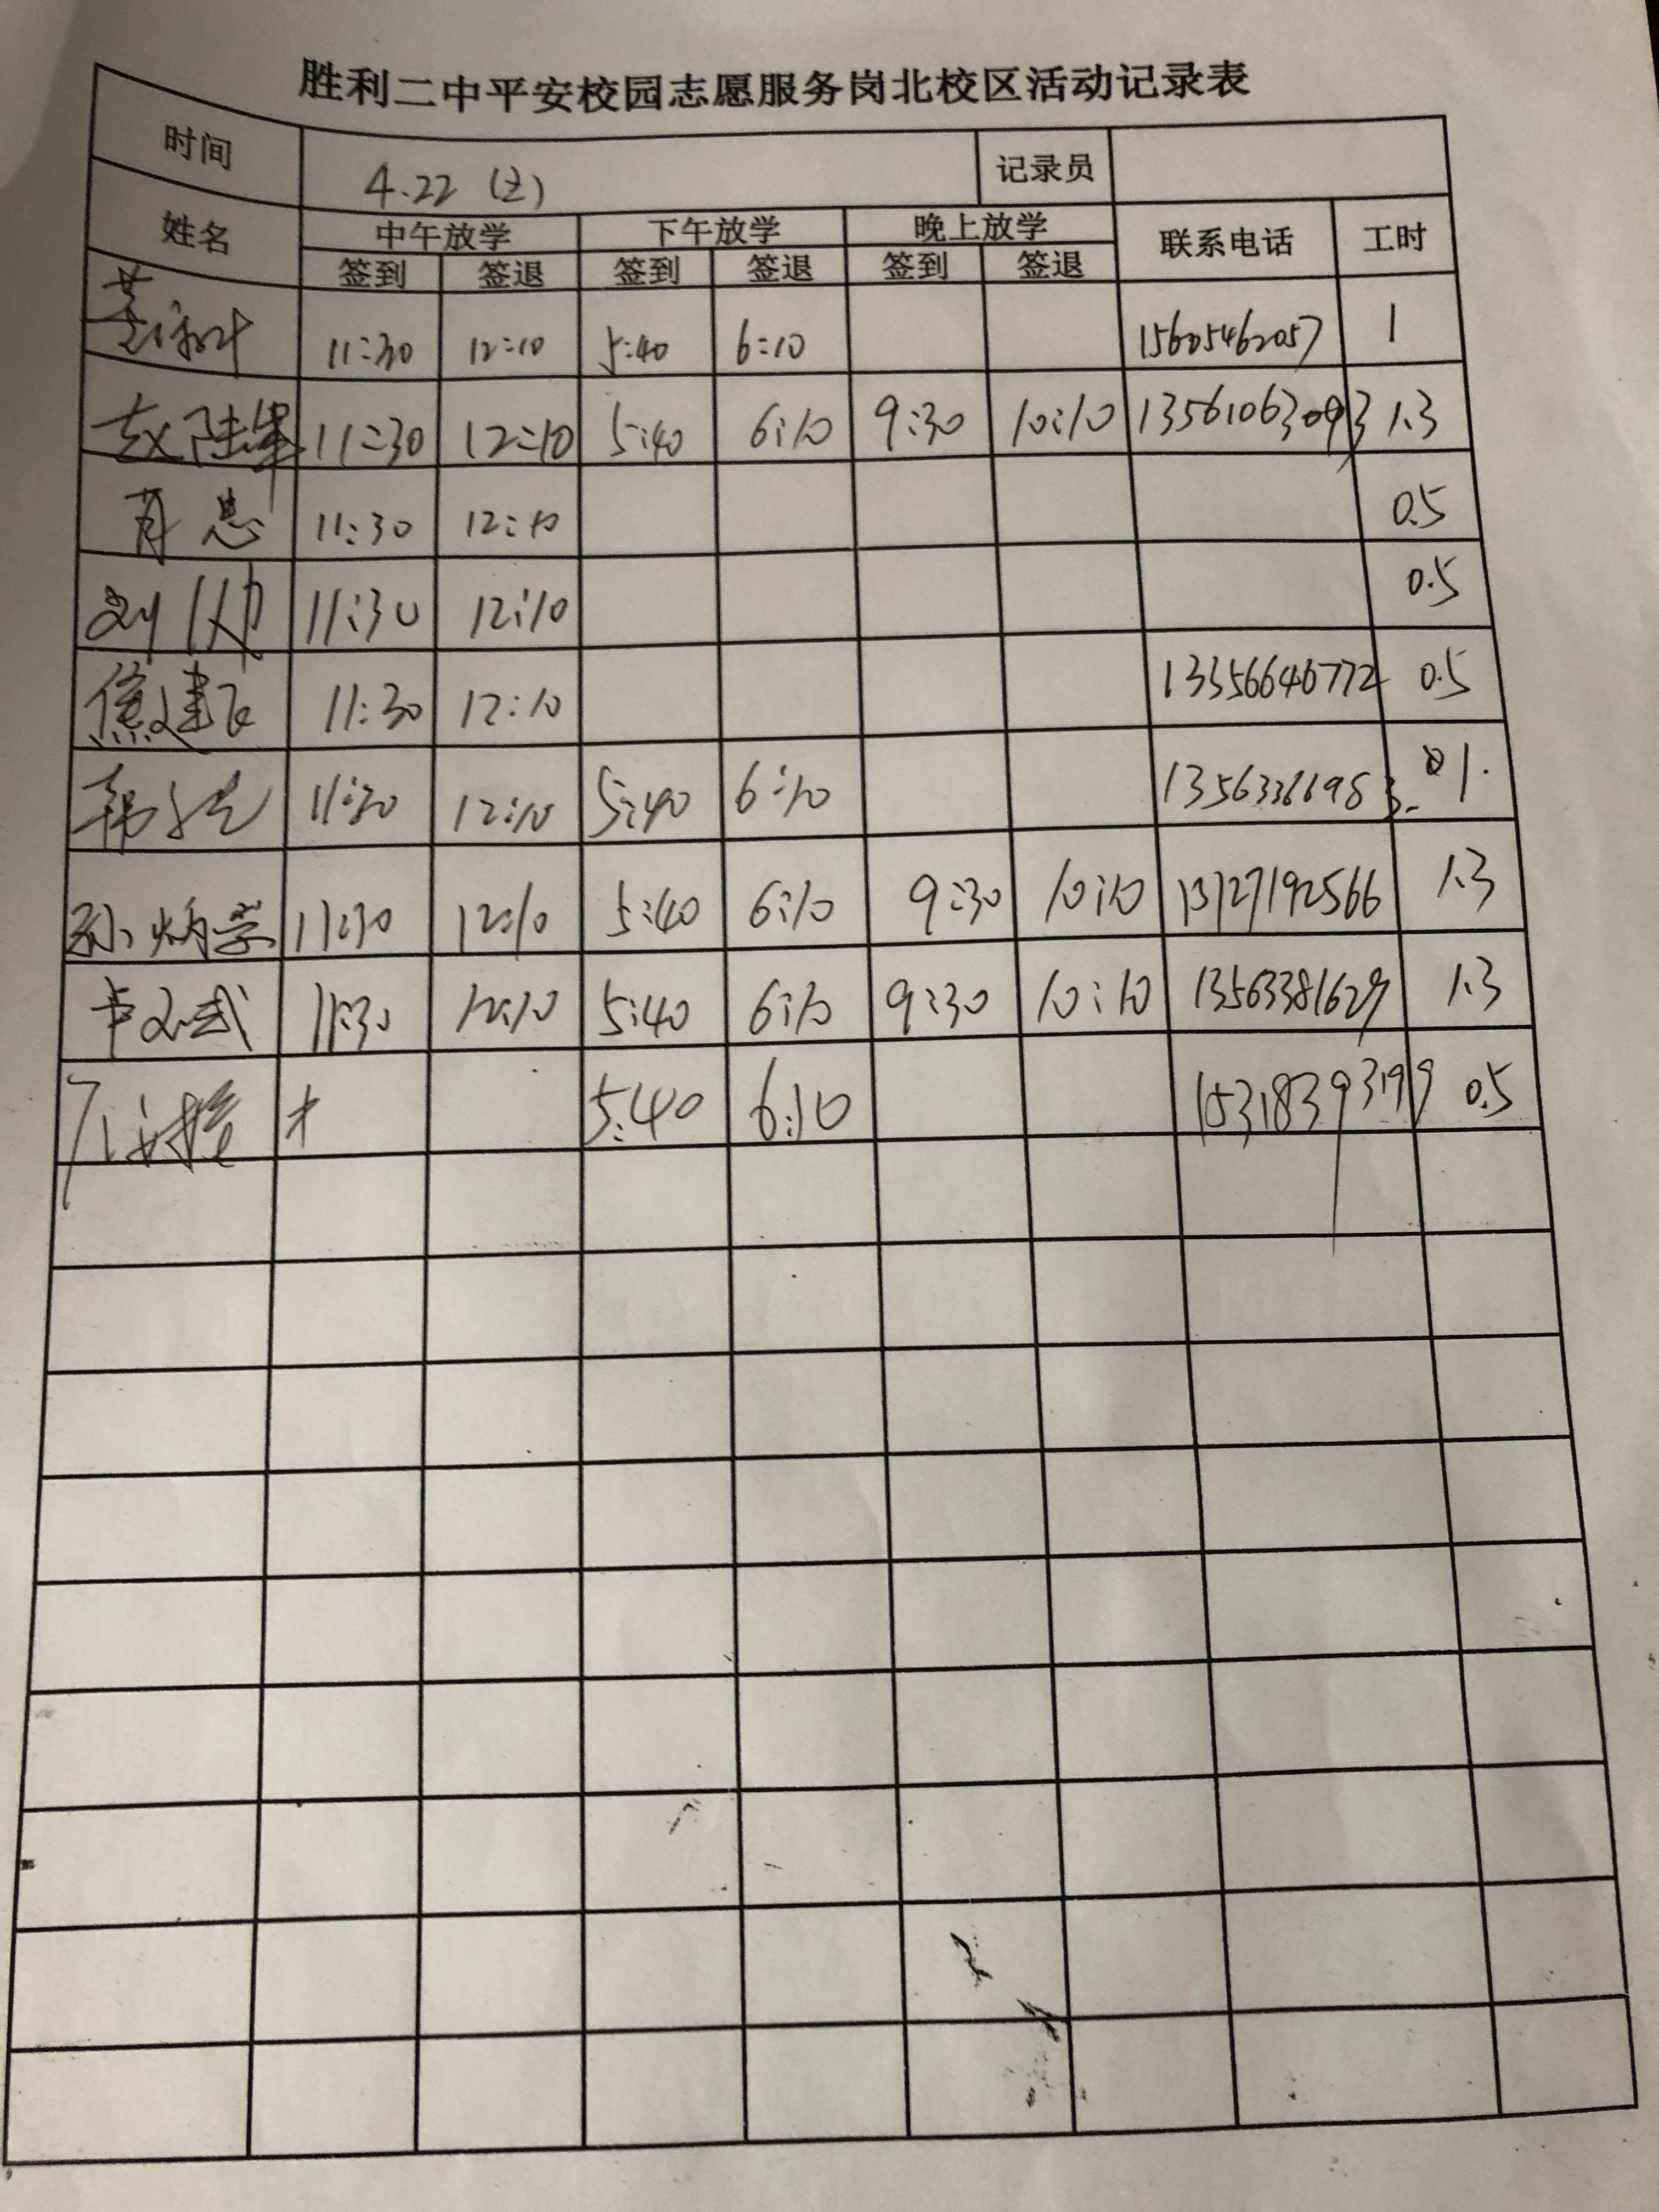 胜利二中平安校园志愿服务岗北校区活动记录表
时间 4.22 记录员
姓名 中午放学 下午放学 晚上放学 联系电话 工时
签到 签退 签到 签退 签到 签退
11:30 12:10 5:40 6:10 15605462057 1
赵 11:30 12:10 5:40 6:10 9:30 10:10 13561063093 1.3
11:30 12:10 0.5
刘 11:30 12:10 0.5
焦建飞 11:30 12:10 13356646772 0.5
韩 11:30 12:10 5:40 6:10 1.
孙炳学 11:30 12:10 5:40 6:10 9:30 10:10 13127192566 1.3
卢文武 11:30 12:10 5:40 6:10 9:30 10:10 13563381629 1.3
5:40 6:10 15318393199 0.5